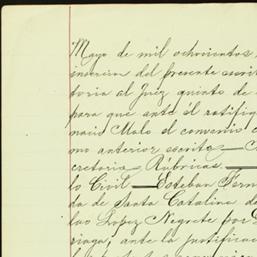 Mayo de mil ochocientos
insercion del presente escri
toria al Juez quinto de
para que ante él ratifiq
nacio Malo el convenio c
mo anterior escrito — C
cretoria — Rúbricas —
lo Civil — Esteban Fern
da de Santa Catalina de
lao Lopez Negrete por
riaga; ante la justifica